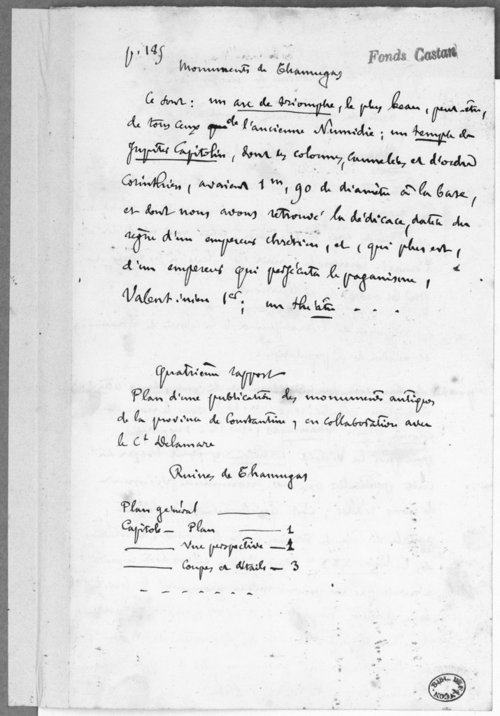 p. 185
Fonds Castan
Monuments de Thamugas
Ce sont : un arc de triomphe, le plus beau, peut-être,
de tous ceux de l'ancienne Numidie ; un temple de
Jupiter Capitolin, dont les colonnes, cannelées et d'ordre
Corinthien, avaient 1 m, 90 de diamètre à la base,
et dont nous avons retrouvé la dédicace, datée du
règne d'un empereur chrétien, et, qui plus est,
d'un empereur qui persécuta le paganisme,
Valentinien 1er ; un théâtre - - -
Quatrième rapport
Plan d'une publication des monuments antiques
de la province de Constantine, en collaboration avec
le Ct Delamare
Ruines de Thamugas
Plan général ———
Capitole — Plan ——— 1
——— Vue perspective — 1
——— Coupes et détails — 3
- - - - - - -